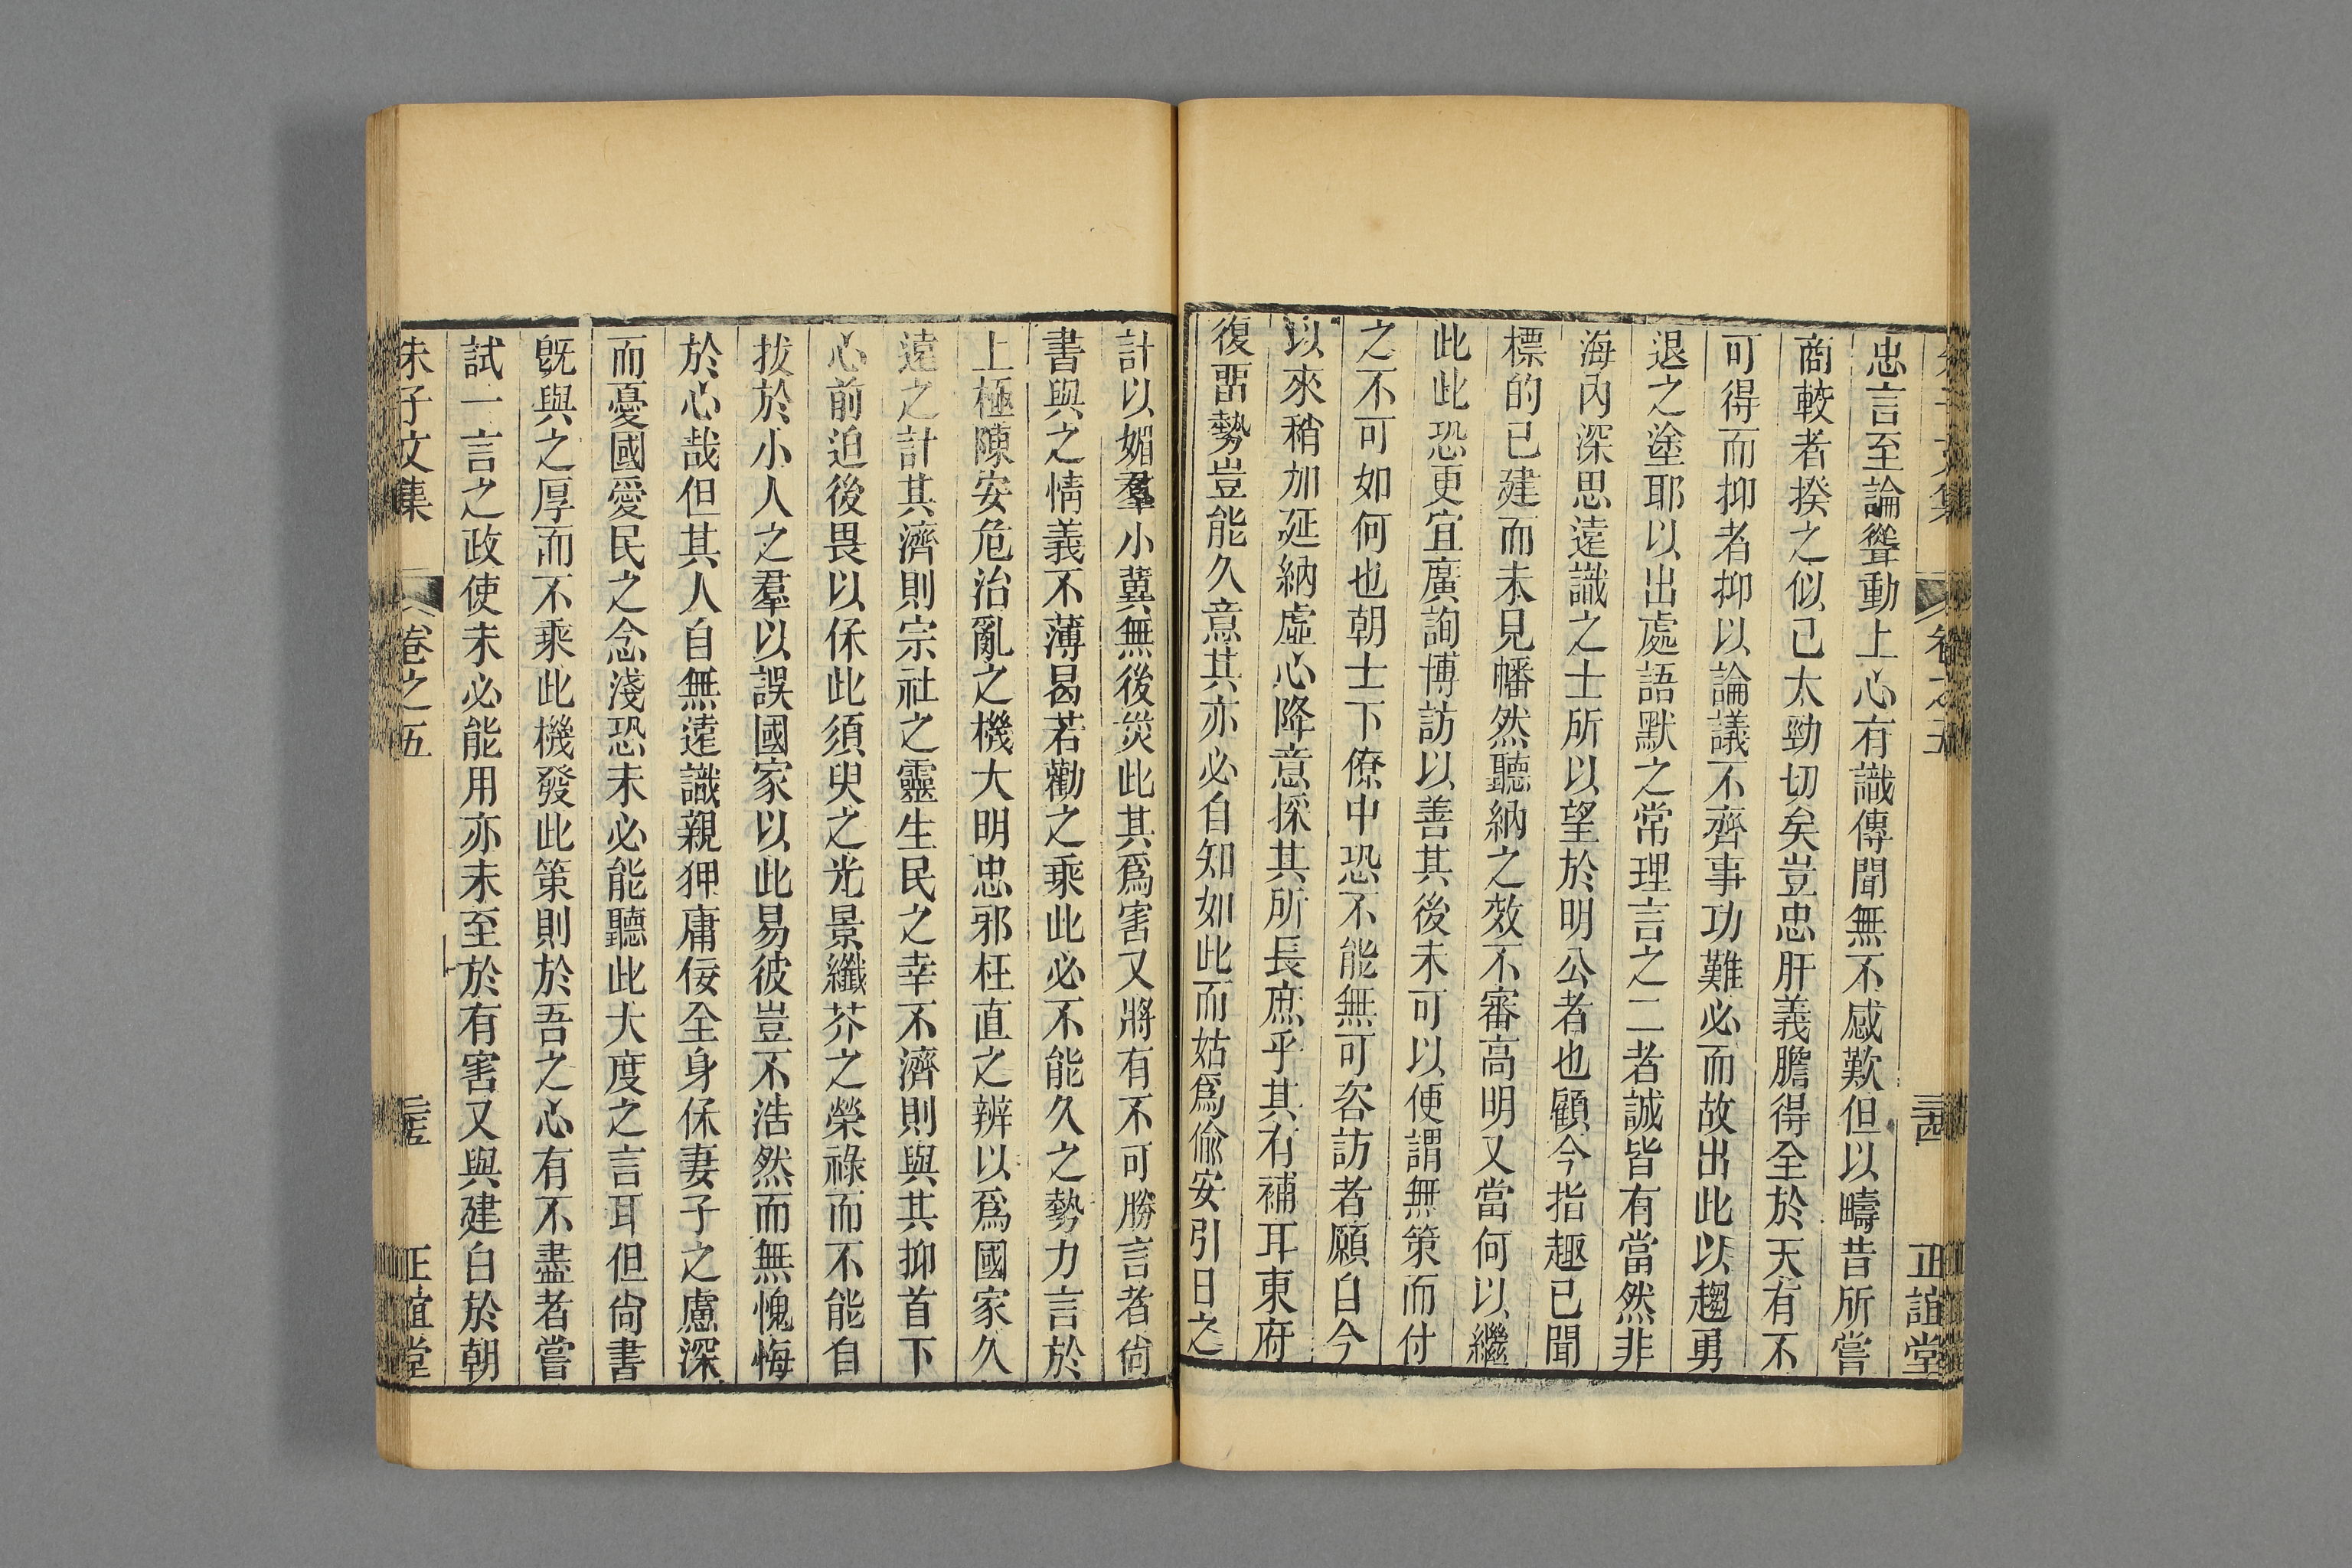 朱子文集 卷之五 三四 正誼堂
忠言至論聳動上心有識傳聞無不感歎但以疇昔所嘗
商較者揆之似已太勁切矣豈忠肝義膽得全於天有不
可得而抑者抑以論議不齊事功難必而故出此以趨勇
退之塗耶以出處語默之常理言之二者誠皆有當然非
海內深思遠識之士所以望於明公者也顧今指趣已聞
標的已建而未見幡然聽納之效不審高明又當何以繼
此此恐更宜廣詢博訪以善其後未可以便謂無策而付
之不可如何也朝士下僚中恐不能無可咨訪者願自今
以來稍加延納虛心降意採其所長庶乎其有補耳東府
復畱勢豈能久意其亦必自知如此而姑爲偷安引日之
計以媚羣小冀無後災此其爲害又將有不可勝言者尙
書與之情義不薄曷若勸之乘此必不能久之勢力言於
上極陳安危治亂之機大明忠邪枉直之辨以爲國家久
遠之計其濟則宗社之靈生民之幸不濟則與其抑首下
心前迫後畏以保此須臾之光景纖芥之榮祿而不能自
拔於小人之羣以誤國家以此易彼豈不浩然而無愧悔
於心哉但其人自無遠識親狎庸佞全身保妻子之慮深
而憂國愛民之念淺恐未必能聽此大度之言耳但尙書
旣與之厚而不乘此機發此策則於吾之心有不盡者嘗
試一言之政使未必能用亦未至於有害又與建白於朝
朱子文集 卷之五 正誼堂